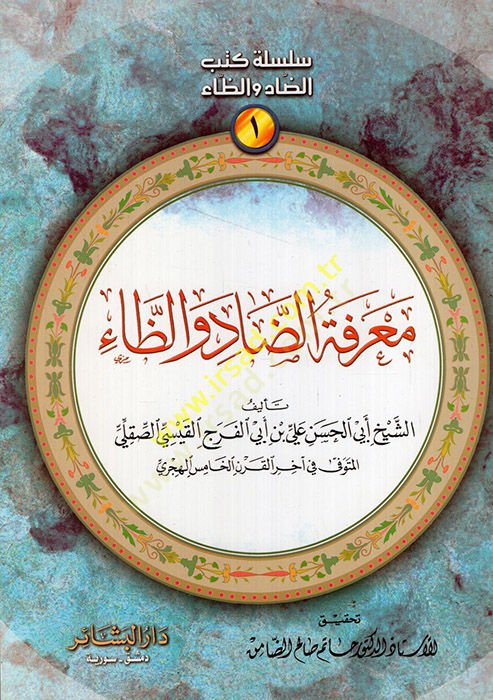 سلسلة كتب
الضّاد والظّاء
١
مَعْرِفَةُ الضَّادِ وَالظَّاءِ
تأليف
الشَّيْخ أَبي الحَسَن عَليّ بْن أَبي الفَرَج القَيْسِيّ الصِّقِلِّيّ
المتوفى في آخر القرن الخامس الهجري
www.irsad.com.tr
تحقيق
الأستاذ الدكتور حاتم صالح الضامن
دار البشائر
دمشق - سورية